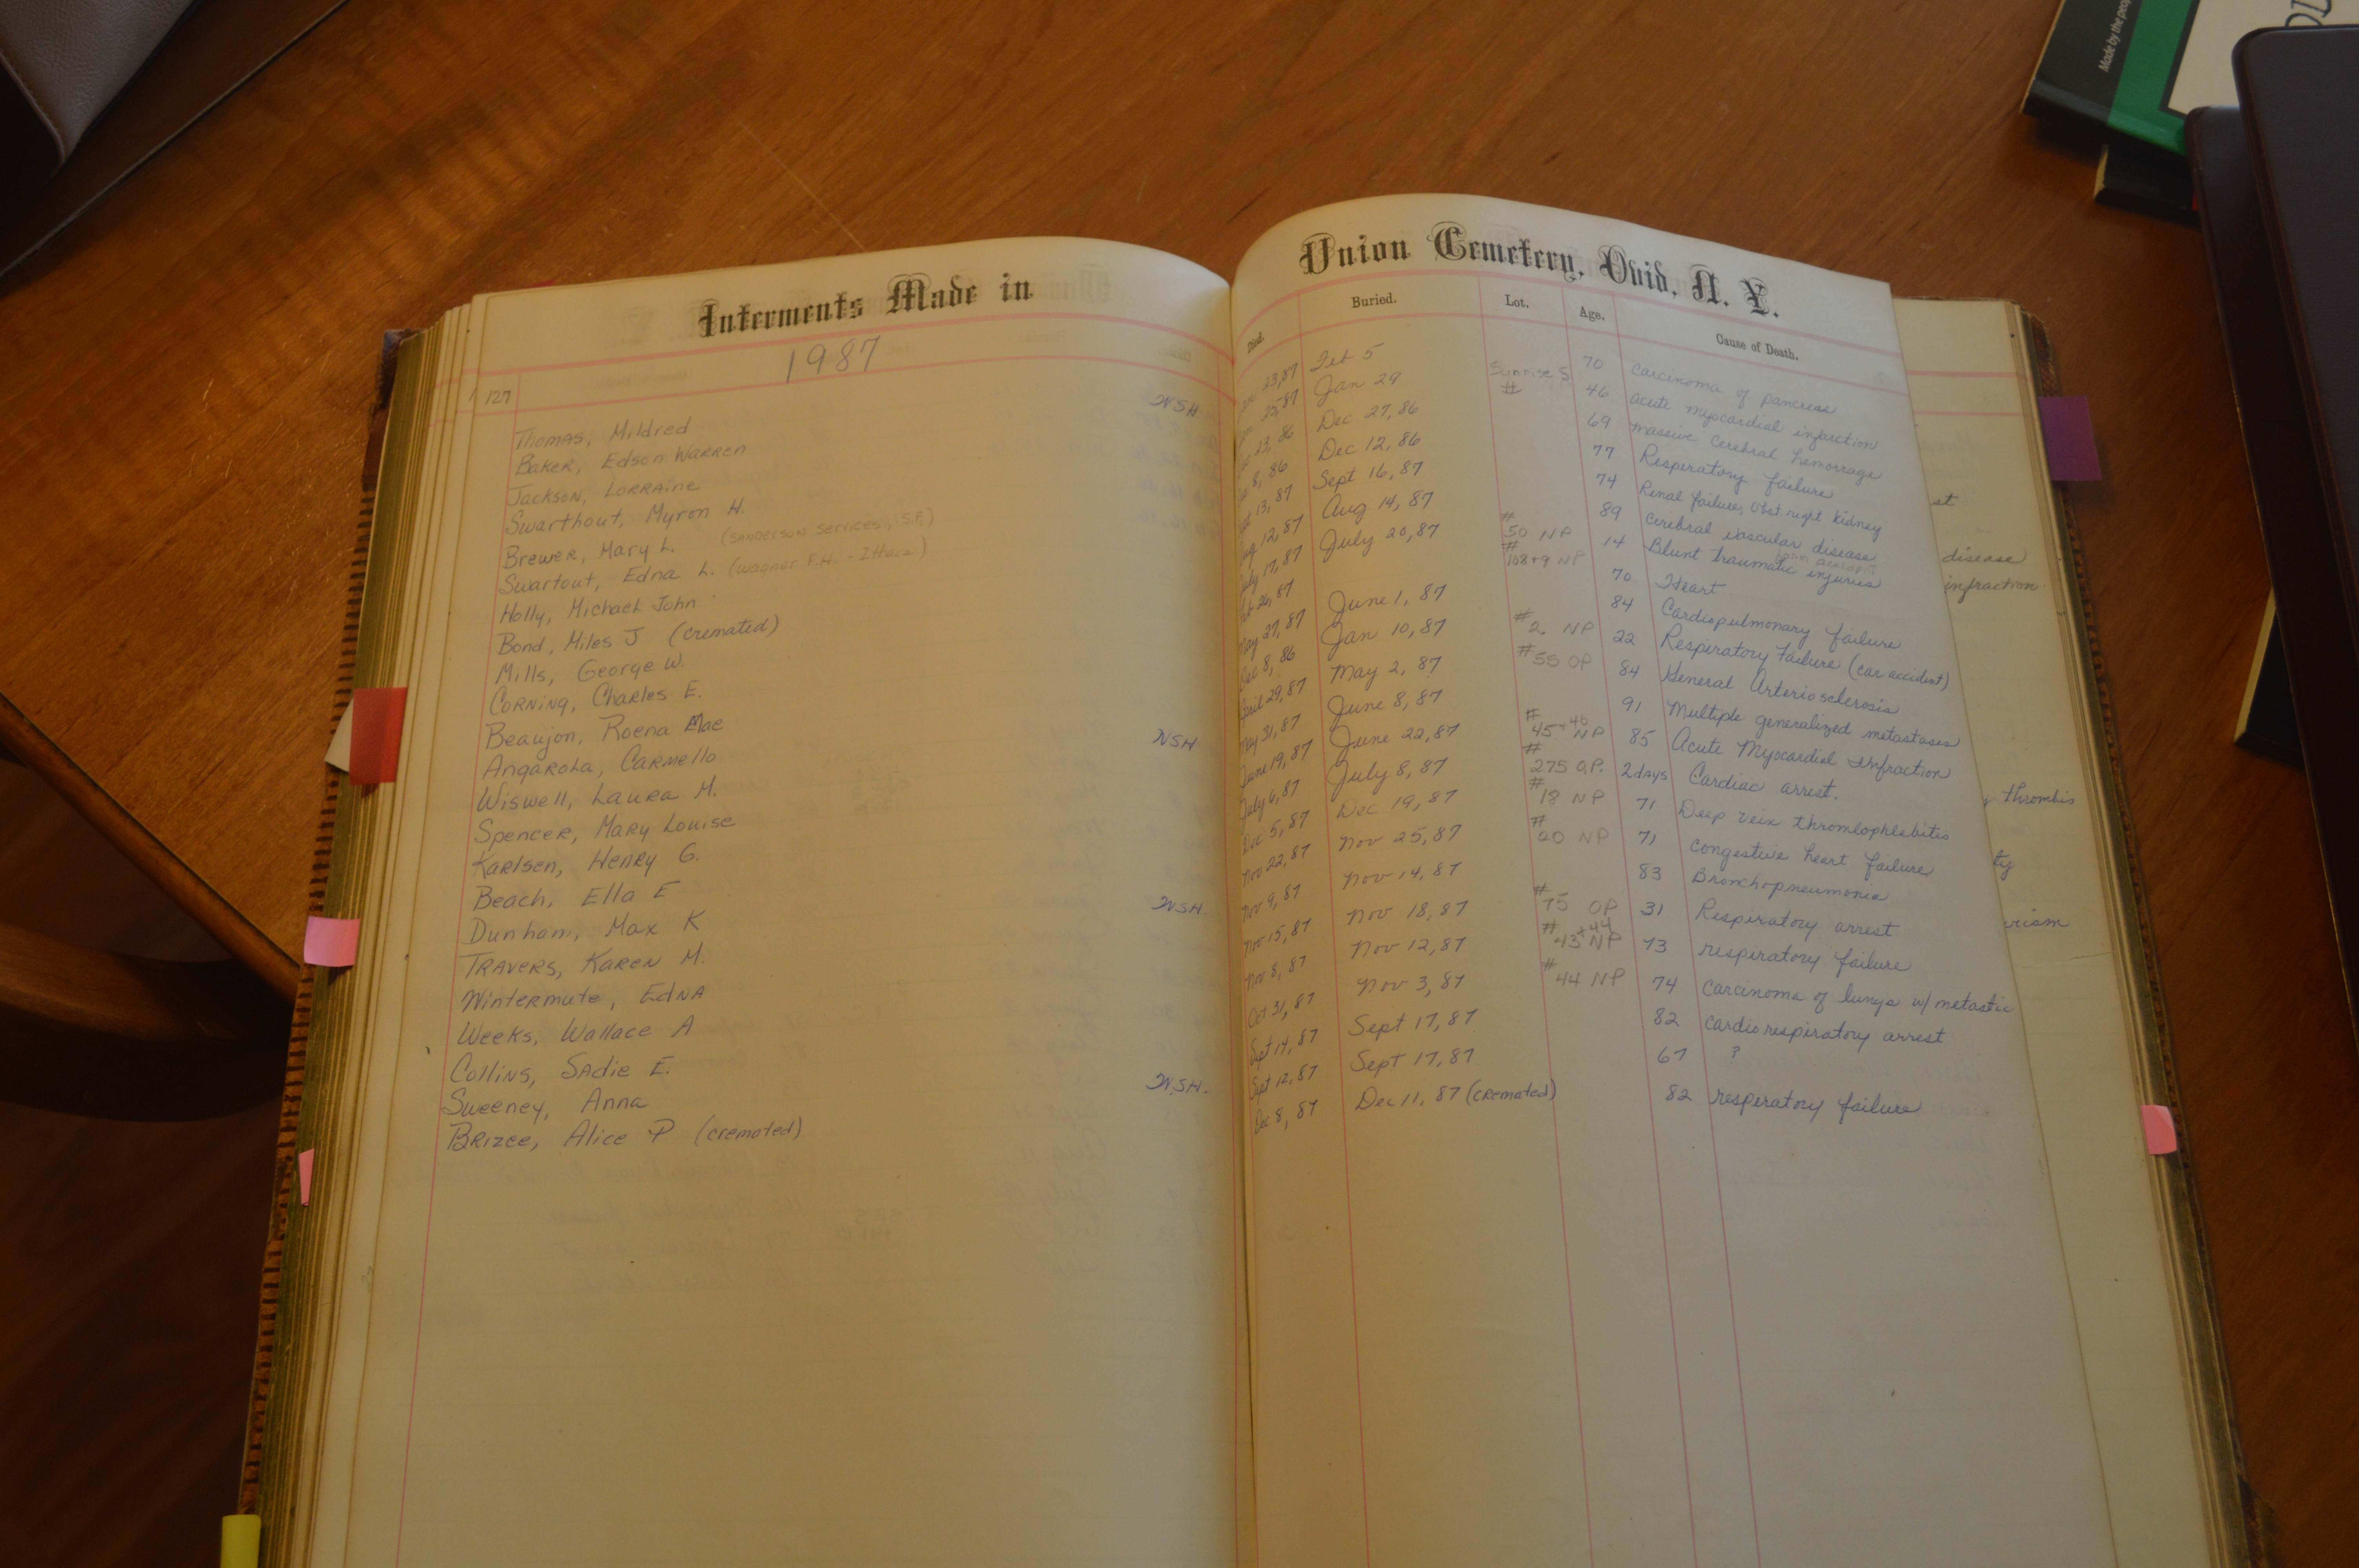 Interments Made in
127 1987
Thomas, Mildred NSH
Baker, Edson Warren
Jackson, Lorraine
Swarthout, Myron H.
Brewer, Mary L. (Sanderson Services, S.F.)
Swartout, Edna L. (Wagner F.H. - Ithaca)
Holly, Michael John
Bond, Miles J (cremated)
Mills, George W.
Corning, Charles E.
Beaujon, Roena Mae
Angarola, Carmello NSH
Wiswell, Laura M.
Spencer, Mary Louise
Karlsen, Henry G.
Beach, Ella E
Dunham, Max K NSH
Travers, Karen M.
Wintermute, Edna
Weeks, Wallace A
Collins, Sadie E.
Sweeney, Anna NSH.
Brizee, Alice P (cremated)
Union Cemetery, Ovid, N. Y.
Died. Buried. Lot. Age. Cause of Death.
23,87 Feb 5 70 Carcinoma of pancreas
25,87 Jan 29 Sunrise S # 46 acute myocardial infarction
23, 86 Dec 27, 86 69 massive cerebral hemorrage
8, 86 Dec 12, 86 77 Respiratory failure
13, 87 Sept 16, 87 74 Renal failure, Obst right kidney
Aug 12, 87 Aug 14, 87 89 cerebral vascular disease
July 17, 87 July 20, 87 # 50 NP 14 Blunt traumatic injuries farm accident
Feb 26, 87 # 108+9 NP 70 Heart
May 27, 87 June 1, 87 84 Cardiopulmonary failure
Dec 8, 86 Jan 10, 87 # 2. NP 22 Respiratory Failure (car accident)
April 29, 87 May 2, 87 # 55 OP 84 General Arteriosclerosis
May 31, 87 June 8, 87 91 Multiple generalized metastases
June 19, 87 June 22, 87 # 45+46 NP 85 Acute Myocardial Infraction
July 6, 87 July 8, 87 # 275 O.P. 2days Cardiac arrest.
Dec 5, 87 Dec 19, 87 # NP 71 Deep vein thromlophlebitis
Nov 22, 87 Nov 25, 87 # 20 NP 71 congestive heart failure
Nov 9, 87 Nov 14, 87 83 Bronchopneumonia
Nov 15, 87 Nov 18, 87 # 75 OP 31 Respiratory arrest
Nov 8, 87 Nov 12, 87 # 43+44 NP 73 respiratory failure
Oct 31, 87 Nov 3, 87 # 44 NP 74 carcinoma of lungs w/ metastic
Sept 14, 87 Sept 17, 87 82 cardiorespiratory arrest
Sept 12, 87 Sept 17, 87 67 ?
Dec 8, 87 Dec 11, 87 (cremated) 82 respiratory failure
st
disease
infraction
thrombis
ty
rism
Made by the peop